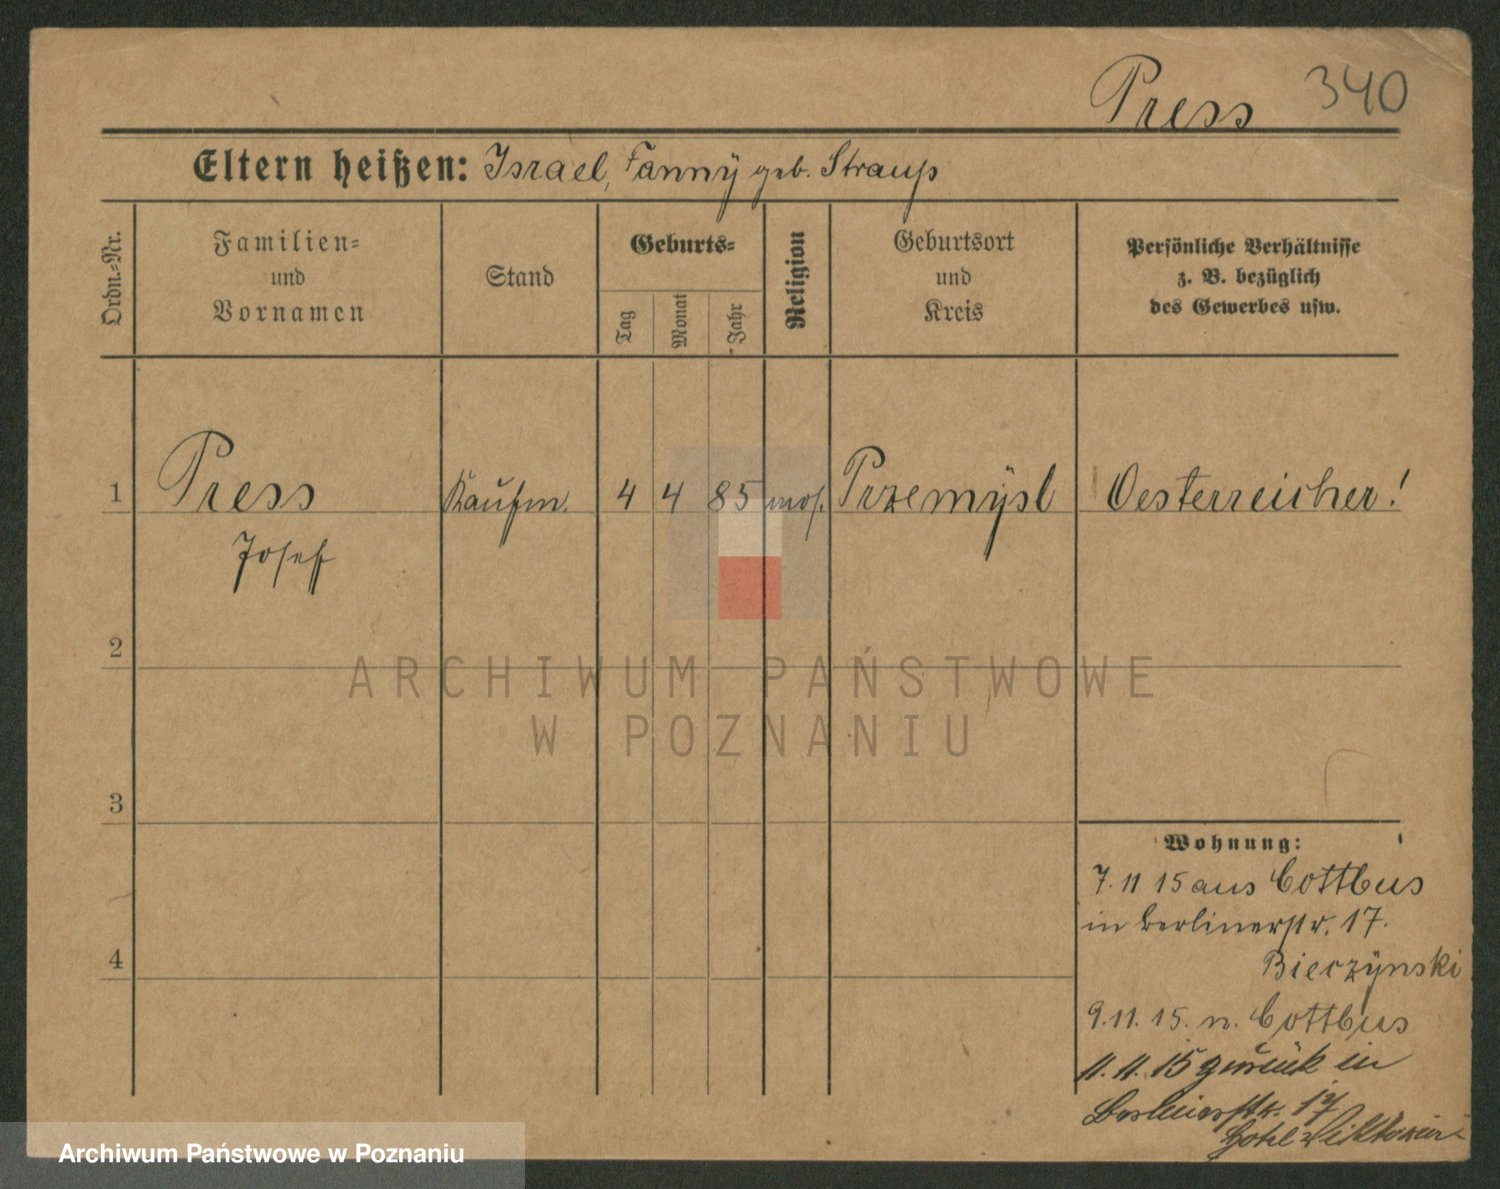 Press 340
Eltern heißen: Israel, Fanny geb. Strauß
Ordn.-Nr.
Familien-
und
Vornamen
Stand
Geburts-
Tag
Monat
Jahr
Religion
Geburtsort
und
Kreis
Persönliche Verhältnisse
z. B. bezüglich
des Gewerbes usw.
1 Press Kaufm. 4 4 85 mos. Przemÿsl Oesterreicher!
Josef
2
ARCHIWUM PAŃSTWOWE
W POZNANIU
3
Wohnung:
7. 11 15 aus Cottbus
in Berlinerstr. 17.
Bieczÿnski
4
9. 11. 15. n. Cottbus
11. 11. 15 zurück in
Berlinerstr. 17
Hotel Viktoria
Archiwum Państwowe w Poznaniu